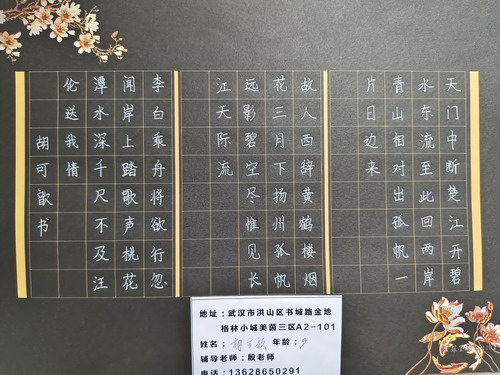 天门中断楚江开碧
水东流至此回两岸
青山相对出孤帆一
片日边来
故人西辞黄鹤楼烟
花三月下扬州孤帆
远影碧空尽惟见长
江天际流
李白乘舟将欲行忽
闻岸上踏歌声桃花
潭水深千尺不及汪
伦送我情
胡可歆书
地址:武汉市洪山区书城路金地
格林小城美茵三区A2-101
姓名:胡可歆 年龄:9
辅导老师:殷老师
电话:13628650291